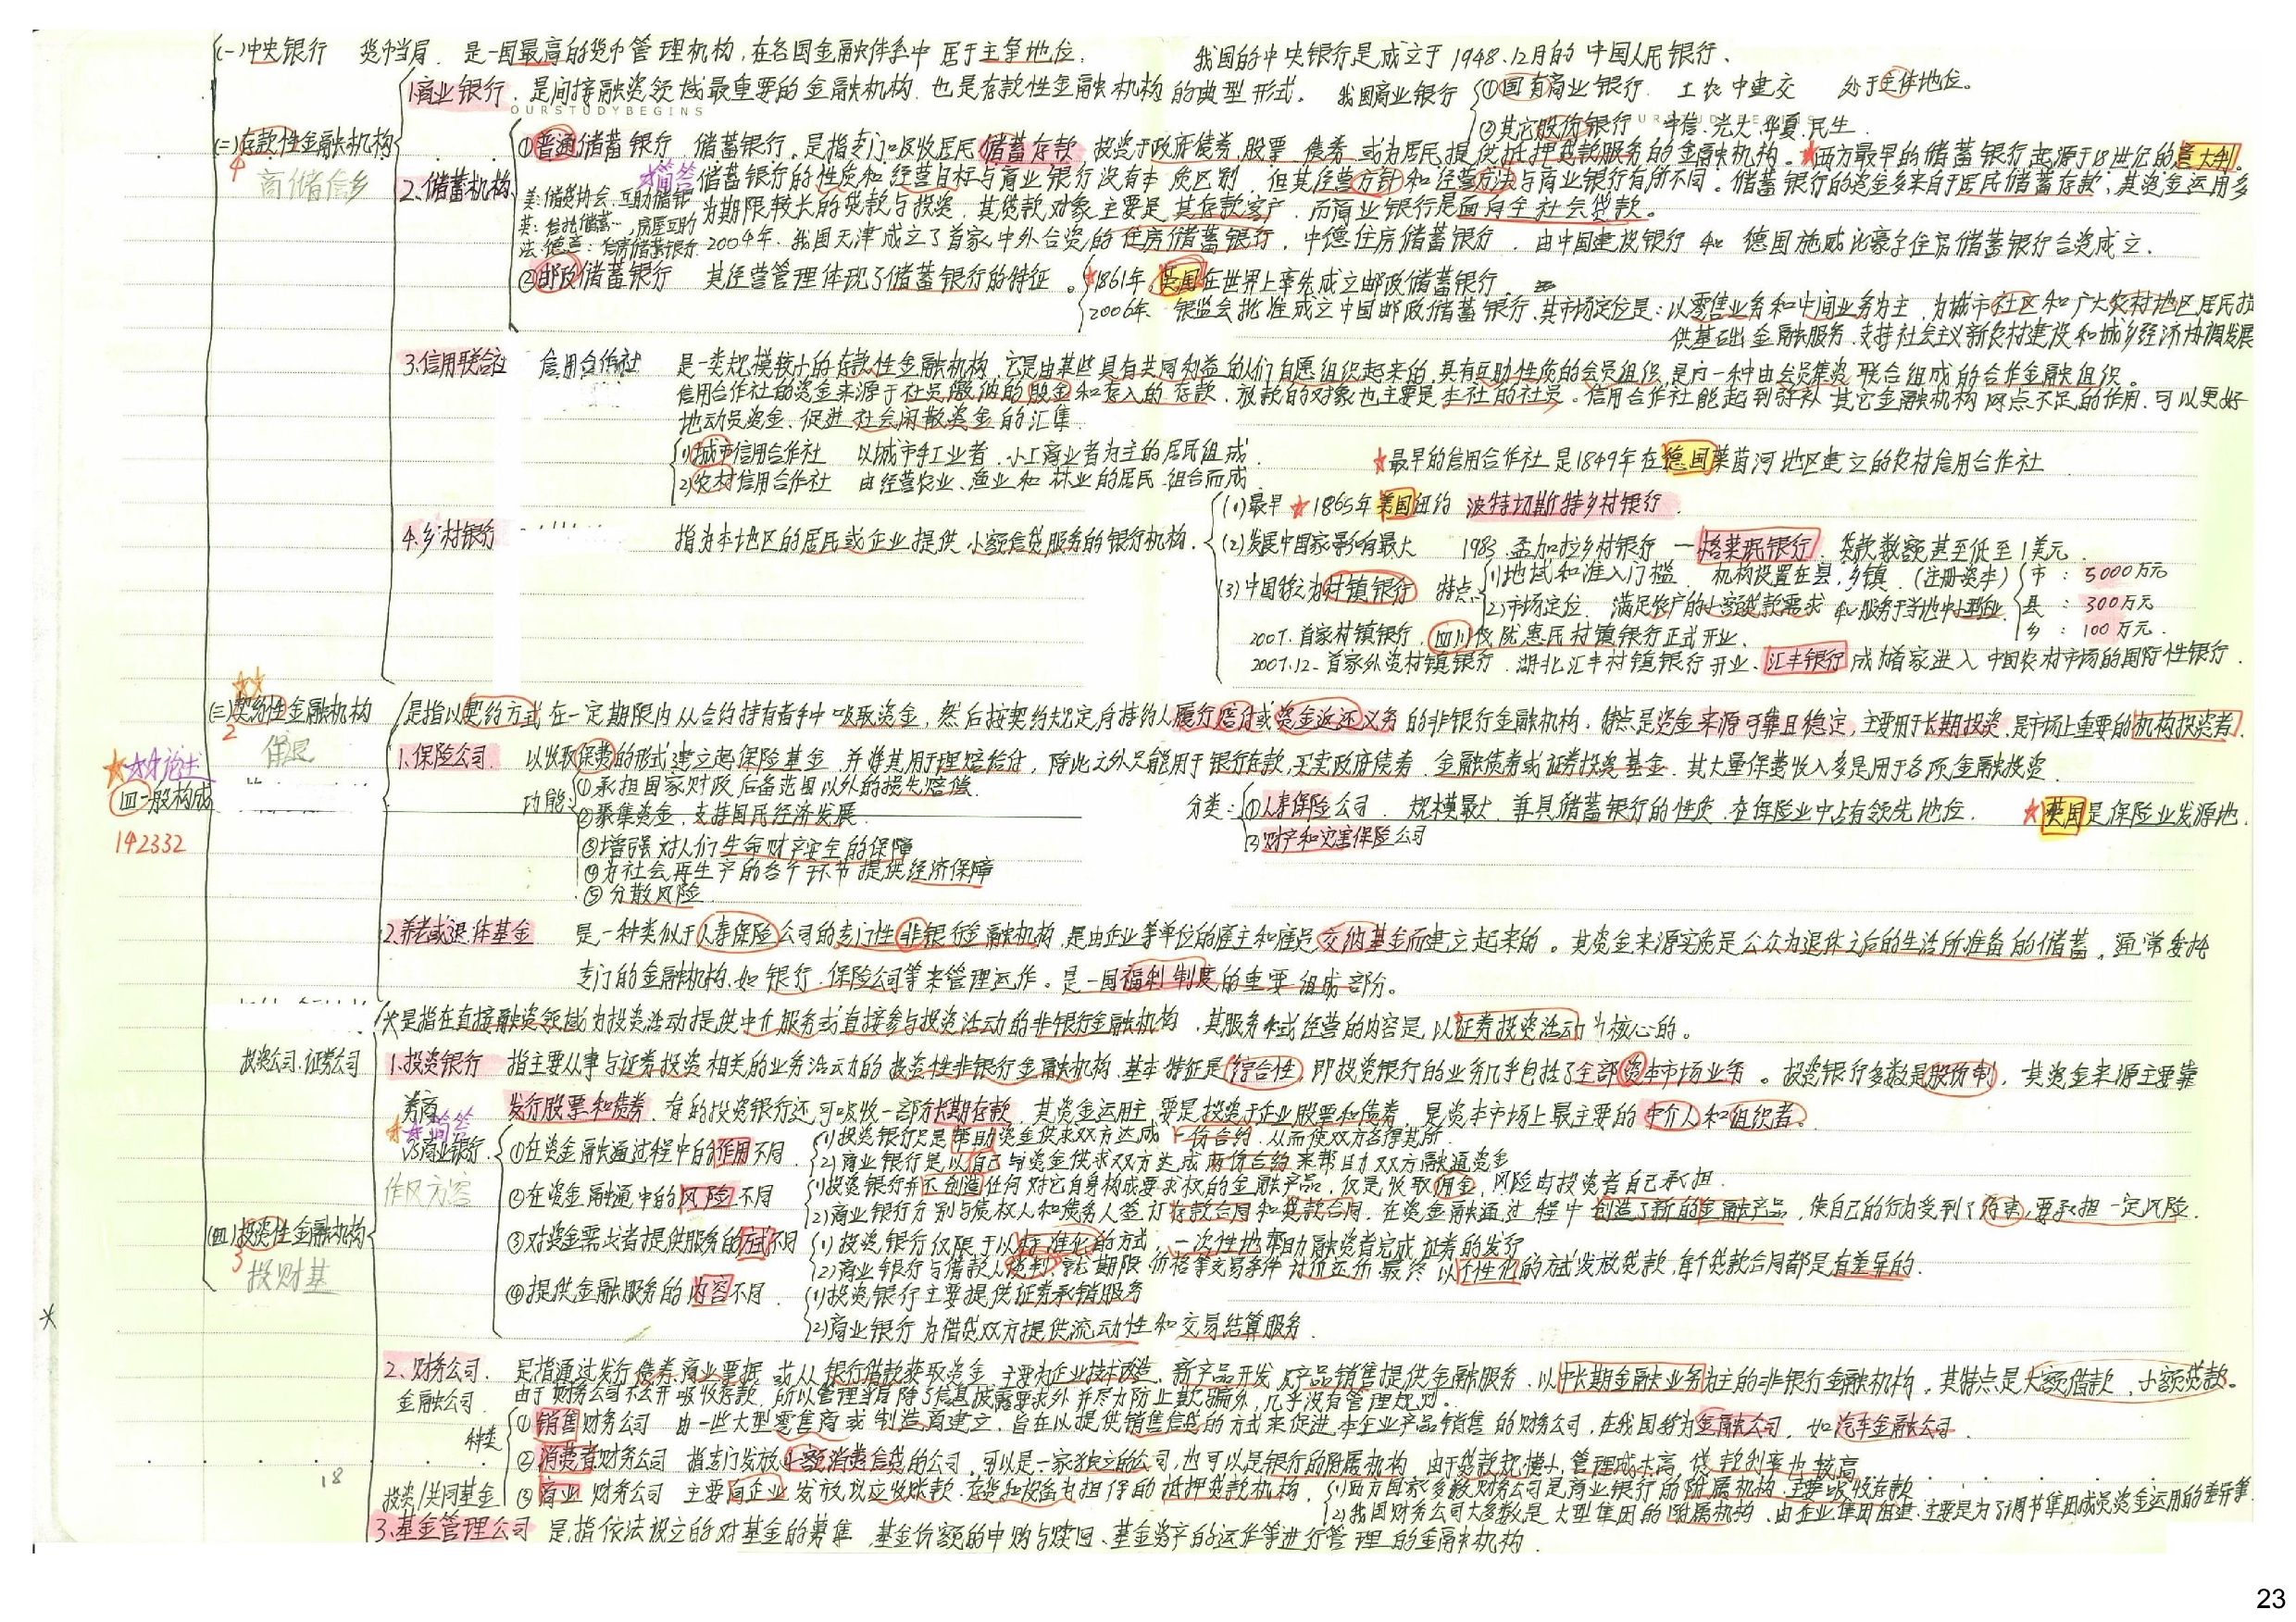 (一)中央银行 货币当局. 是一国最高的货币管理机构,在各国金融体系中居于主导地位. 我国的中央银行是成立于1948.12月的中国人民银行.
1.商业银行. 是间接融资领域最重要的金融机构.也是存款性金融机构的典型形式. 我国商业银行 ①国有商业银行. 工农中建交 处于主体地位.
OURSTUDYBEGINS
②其它股份银行 中信.光大.华夏.民生.
(二)存款性金融机构
4 商储信乡
2.储蓄机构
①普通储蓄银行 储蓄银行.是指专门吸收居民储蓄存款,投资于政府债券,股票.债券.或为居民提供抵押贷款服务的金融机构。★西方最早的储蓄银行起源于18世纪的意大利.
才简答 储蓄银行的性质和经营目标与商业银行没有本质区别.但其经营方针和经营方法与商业银行有所不同。储蓄银行的资金多来自于居民储蓄存款,其资金运用多
美:储贷协会.互助储银 为期限较长的贷款与投资.其贷款对象主要是其存款客户.而商业银行是面向全社会贷款。
英:信托储蓄…,房屋互助
法.德意:住房储蓄银行. 2004年.我国天津成立了首家中外合资的住房储蓄银行.中德住房储蓄银行.由中国建设银行和德国施威比豪尔住房储蓄银行合资成立.
②邮政储蓄银行 其经营管理体现了储蓄银行的特征。 ★1861年.英国在世界上率先成立邮政储蓄银行.
2006年 银监会批准成立中国邮政储蓄银行.其市场定位是:以零售业务和中间业务为主.为城市社区和广大农村地区居民提
供基础金融服务.支持社会主义新农村建设和城乡经济协调发展
3.信用联合社 信用合作社 是一类规模较小的存款性金融机构,它是由某些具有共同利益的人们自愿组织起来的,具有互助性质的会员组织,是内一种由会员集资联合组成的合作金融组织。
信用合作社的资金来源于社员缴纳的股金和存入的存款.放款的对象也主要是本社的社员。信用合作社能起到弥补其它金融机构网点不足的作用.可以更好
地动员资金.促进社会闲散资金的汇集.
1)城市信用合作社 以城市手工业者.小工商业者为主的居民组成. ★最早的信用合作社是1849年在德国莱茵河地区建立的农村信用合作社
2)农村信用合作社 由经营农业、渔业和林业的居民组合而成.
4.乡村银行 指为本地区的居民或企业提供小额信贷服务的银行机构.
(1)最早 ★1865年美国纽约 波特切斯特乡村银行.
(2)发展中国家影响最大 1983.孟加拉乡村银行 — 格莱珉银行. 贷款数额甚至低至1美元.
(3)中国称之为村镇银行 特点 1)地域和准入门槛. 机构设置在县,乡镇.(注册资本) 市:5000万元
2)市场定位. 满足农户的小额贷款需求和服务于当地中小型企业. 县:300万元
乡:100万元.
2007.首家村镇银行.四川仪陇惠民村镇银行正式开业.
2007.12.首家外资村镇银行.湖北汇丰村镇银行开业、汇丰银行成为首家进入中国农村市场的国际性银行.
(三)契约性金融机构
2 保退
是指以契约方式在一定期限内从合约持有者手中吸取资金,然后按契约规定向持约人履行赔付或资金返还义务的非银行金融机构.特点是资金来源可靠且稳定,主要用于长期投资.是市场上重要的机构投资者.
1.保险公司. 以收取保费的形式建立起保险基金.并将其用于理赔给付,除此之外只能用于银行存款,买卖政府债券.金融债券或证券投资基金.其大量保费收入多是用于各项金融投资.
★才论述
四一般构成
142332
功能 ①承担国家财政后备范围以外的损失赔偿.
②聚集资金.支持国民经济发展.
③增强对人们生命财产安全的保障
④为社会再生产的各个环节提供经济保障
⑤分散风险.
分类: ①人寿保险公司. 规模最大.兼具储蓄银行的性质.在保险业中占有领先地位. ★英国是保险业发源地.
②财产和灾害保险公司
2.养老或退休基金 是一种类似于人寿保险公司的专门性非银行金融机构,是由企业等单位的雇主和雇员交纳基金而建立起来的。其资金来源实质是公众为退休之后的生活所准备的储蓄,通常委托
专门的金融机构.如银行.保险公司等来管理运作。是一国福利制度的重要组成部分。
是指在直接融资领域为投资活动提供中介服务或直接参与投资活动的非银行金融机构.其服务或经营的内容是以证券投资活动为核心的。
投资公司.证券公司
1.投资银行 指主要从事与证券投资相关的业务活动的投资性非银行金融机构.基本特征是综合性,即投资银行的业务几乎包括了全部资本市场业务。投资银行多数是股份制,其资金来源主要靠
券商 发行股票和债券.有的投资银行还可吸收一部分长期存款.其资金运用主要是投资于企业股票和债券.是资本市场上最主要的中介人和组织者。
简答 VS商业银行
作风方容
①在资金融通过程中的作用不同. 1)投资银行只是帮助资金供求双方达成一份合约.从而使双方各得其所.
2)商业银行是以自己与资金供求双方达成两份合约来帮助双方融通资金
②在资金融通中的风险不同 1)投资银行并不创造任何对它自身构成要求权的金融产品,仅是收取佣金,风险由投资者自己承担.
2)商业银行分别与债权人和债务人签订存款合同和贷款合同.在资金融通过程中创造了新的金融产品,使自己的行为受到了约束,要承担一定风险.
③对资金需求者提供服务的方式不同 1)投资银行仅限于以标准化的方式.一次性地帮助融资者完成证券的发行
2)商业银行与借款人谈判,就期限价格等交易条件讨价还价最终以个性化的方式发放贷款,每个贷款合同都是有差异的.
④提供金融服务的内容不同. 1)投资银行主要提供证券承销服务
2)商业银行为借贷双方提供流动性和交易结算服务.
(四)投资性金融机构
3 投财基
2.财务公司. 是指通过发行债券.商业票据或从银行借款获取资金.主要为企业技术改造.新产品开发及产品销售提供金融服务.以中长期金融业务为主的非银行金融机构.其特点是大额借款.小额贷款.
金融公司 由于财务公司不公开吸收存款,所以管理当局除了信息披露要求外并尽力防止欺骗外,几乎没有管理规则.
种类 ①销售财务公司 由一些大型零售商或制造商建立.旨在以提供销售信贷的方式来促进本企业产品销售的财务公司.在我国称为金融公司.如汽车金融公司.
②消费者财务公司 指专门发放小额消费信贷的公司.可以是一家独立的公司,也可以是银行的附属机构.由于贷款规模小.管理成本高.贷款利率也较高
③商业财务公司 主要向企业发放以应收账款.存货和设备为担保的抵押贷款机构. 1)西方国家多数财务公司是商业银行的附属机构.主要吸收存款
2)我国财务公司大多数是大型集团的附属机构.由企业集团组建.主要是为了调节集团成员资金运用的差异等.
18
投资/共同基金
3.基金管理公司 是指依法设立的对基金的募集.基金份额的申购与赎回、基金资产的运作等进行管理的金融机构.
23